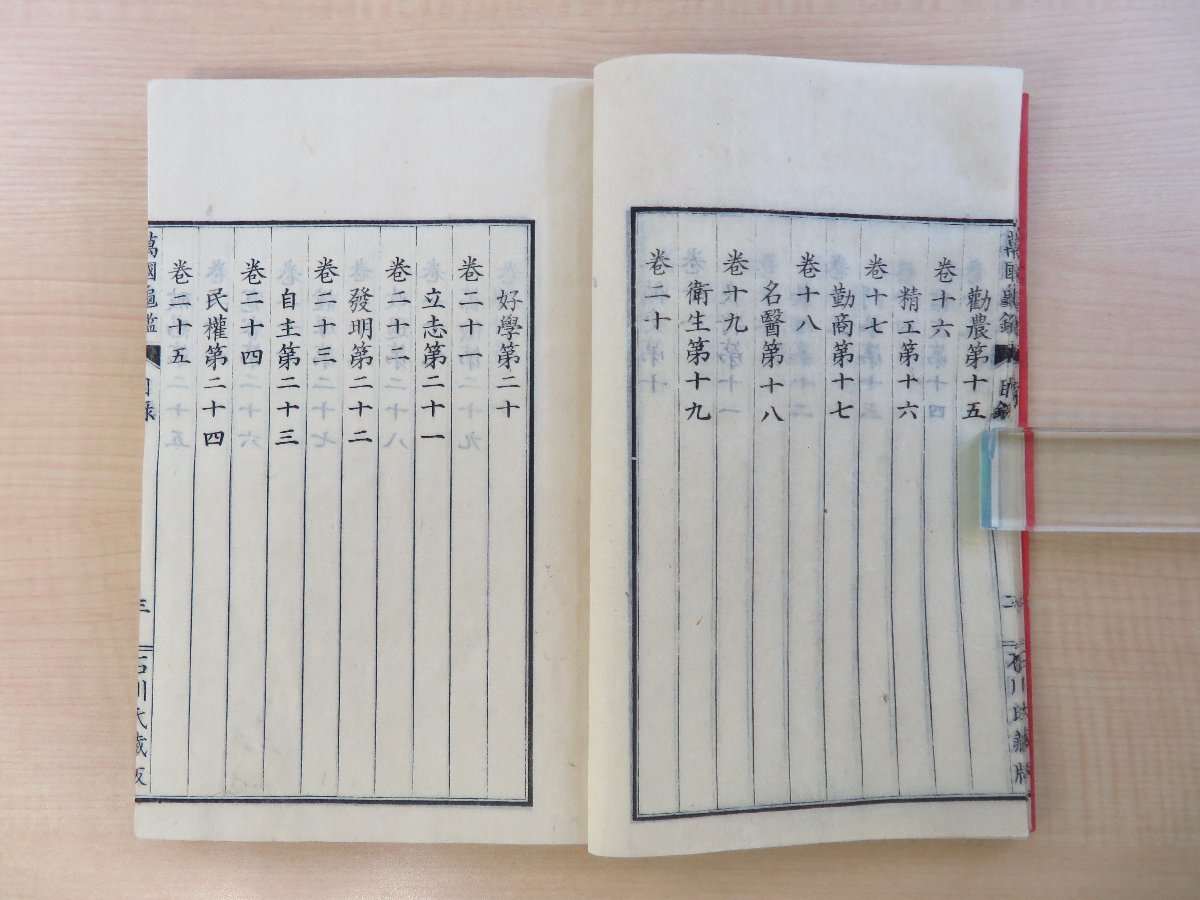 勸農第十五
卷十六
精工第十六
卷十七
勸商第十七
卷十八
名醫第十八
卷十九
衛生第十九
卷二十
好學第二十
卷二十一
立志第二十一
卷二十二
發明第二十二
卷二十三
自主第二十三
卷二十四
民權第二十四
卷二十五
萬國龜鑑
目錄
三
石川氏藏版